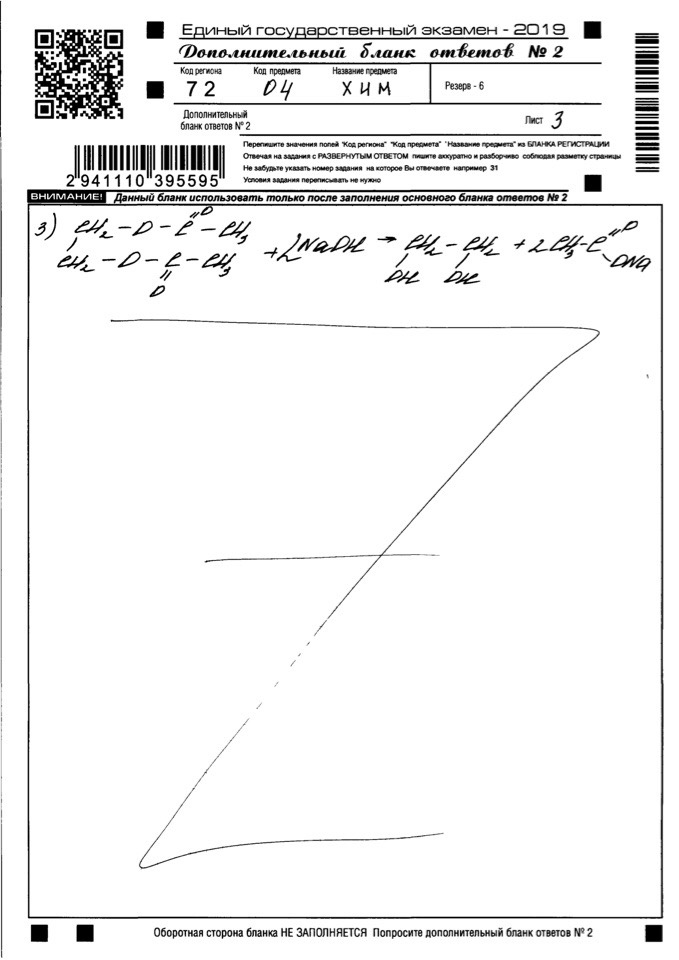 Единый государственный экзамен - 2019
Дополнительный бланк ответов № 2
Код региона Код предмета Название предмета
72 04 ХИМ Резерв - 6
Дополнительный
бланк ответов № 2
Лист 3
Перепишите значения полей "Код региона" "Код предмета" "Название предмета" из БЛАНКА РЕГИСТРАЦИИ
Отвечая на задания с РАЗВЕРНУТЫМ ОТВЕТОМ пишите аккуратно и разборчиво соблюдая разметку страницы
Не забудьте указать номер задания на которое Вы отвечаете например 31
Условия задания переписывать не нужно
2 941110 395595
ВНИМАНИЕ! Данный бланк использовать только после заполнения основного бланка ответов № 2
3) CH₂ - O - C(=O) - CH₃
CH₂ - O - C - CH₃ + 2NaOH → CH₂ - CH₂ + 2CH₃-C(=O)ONa
O OH OH
Оборотная сторона бланка НЕ ЗАПОЛНЯЕТСЯ Попросите дополнительный бланк ответов № 2